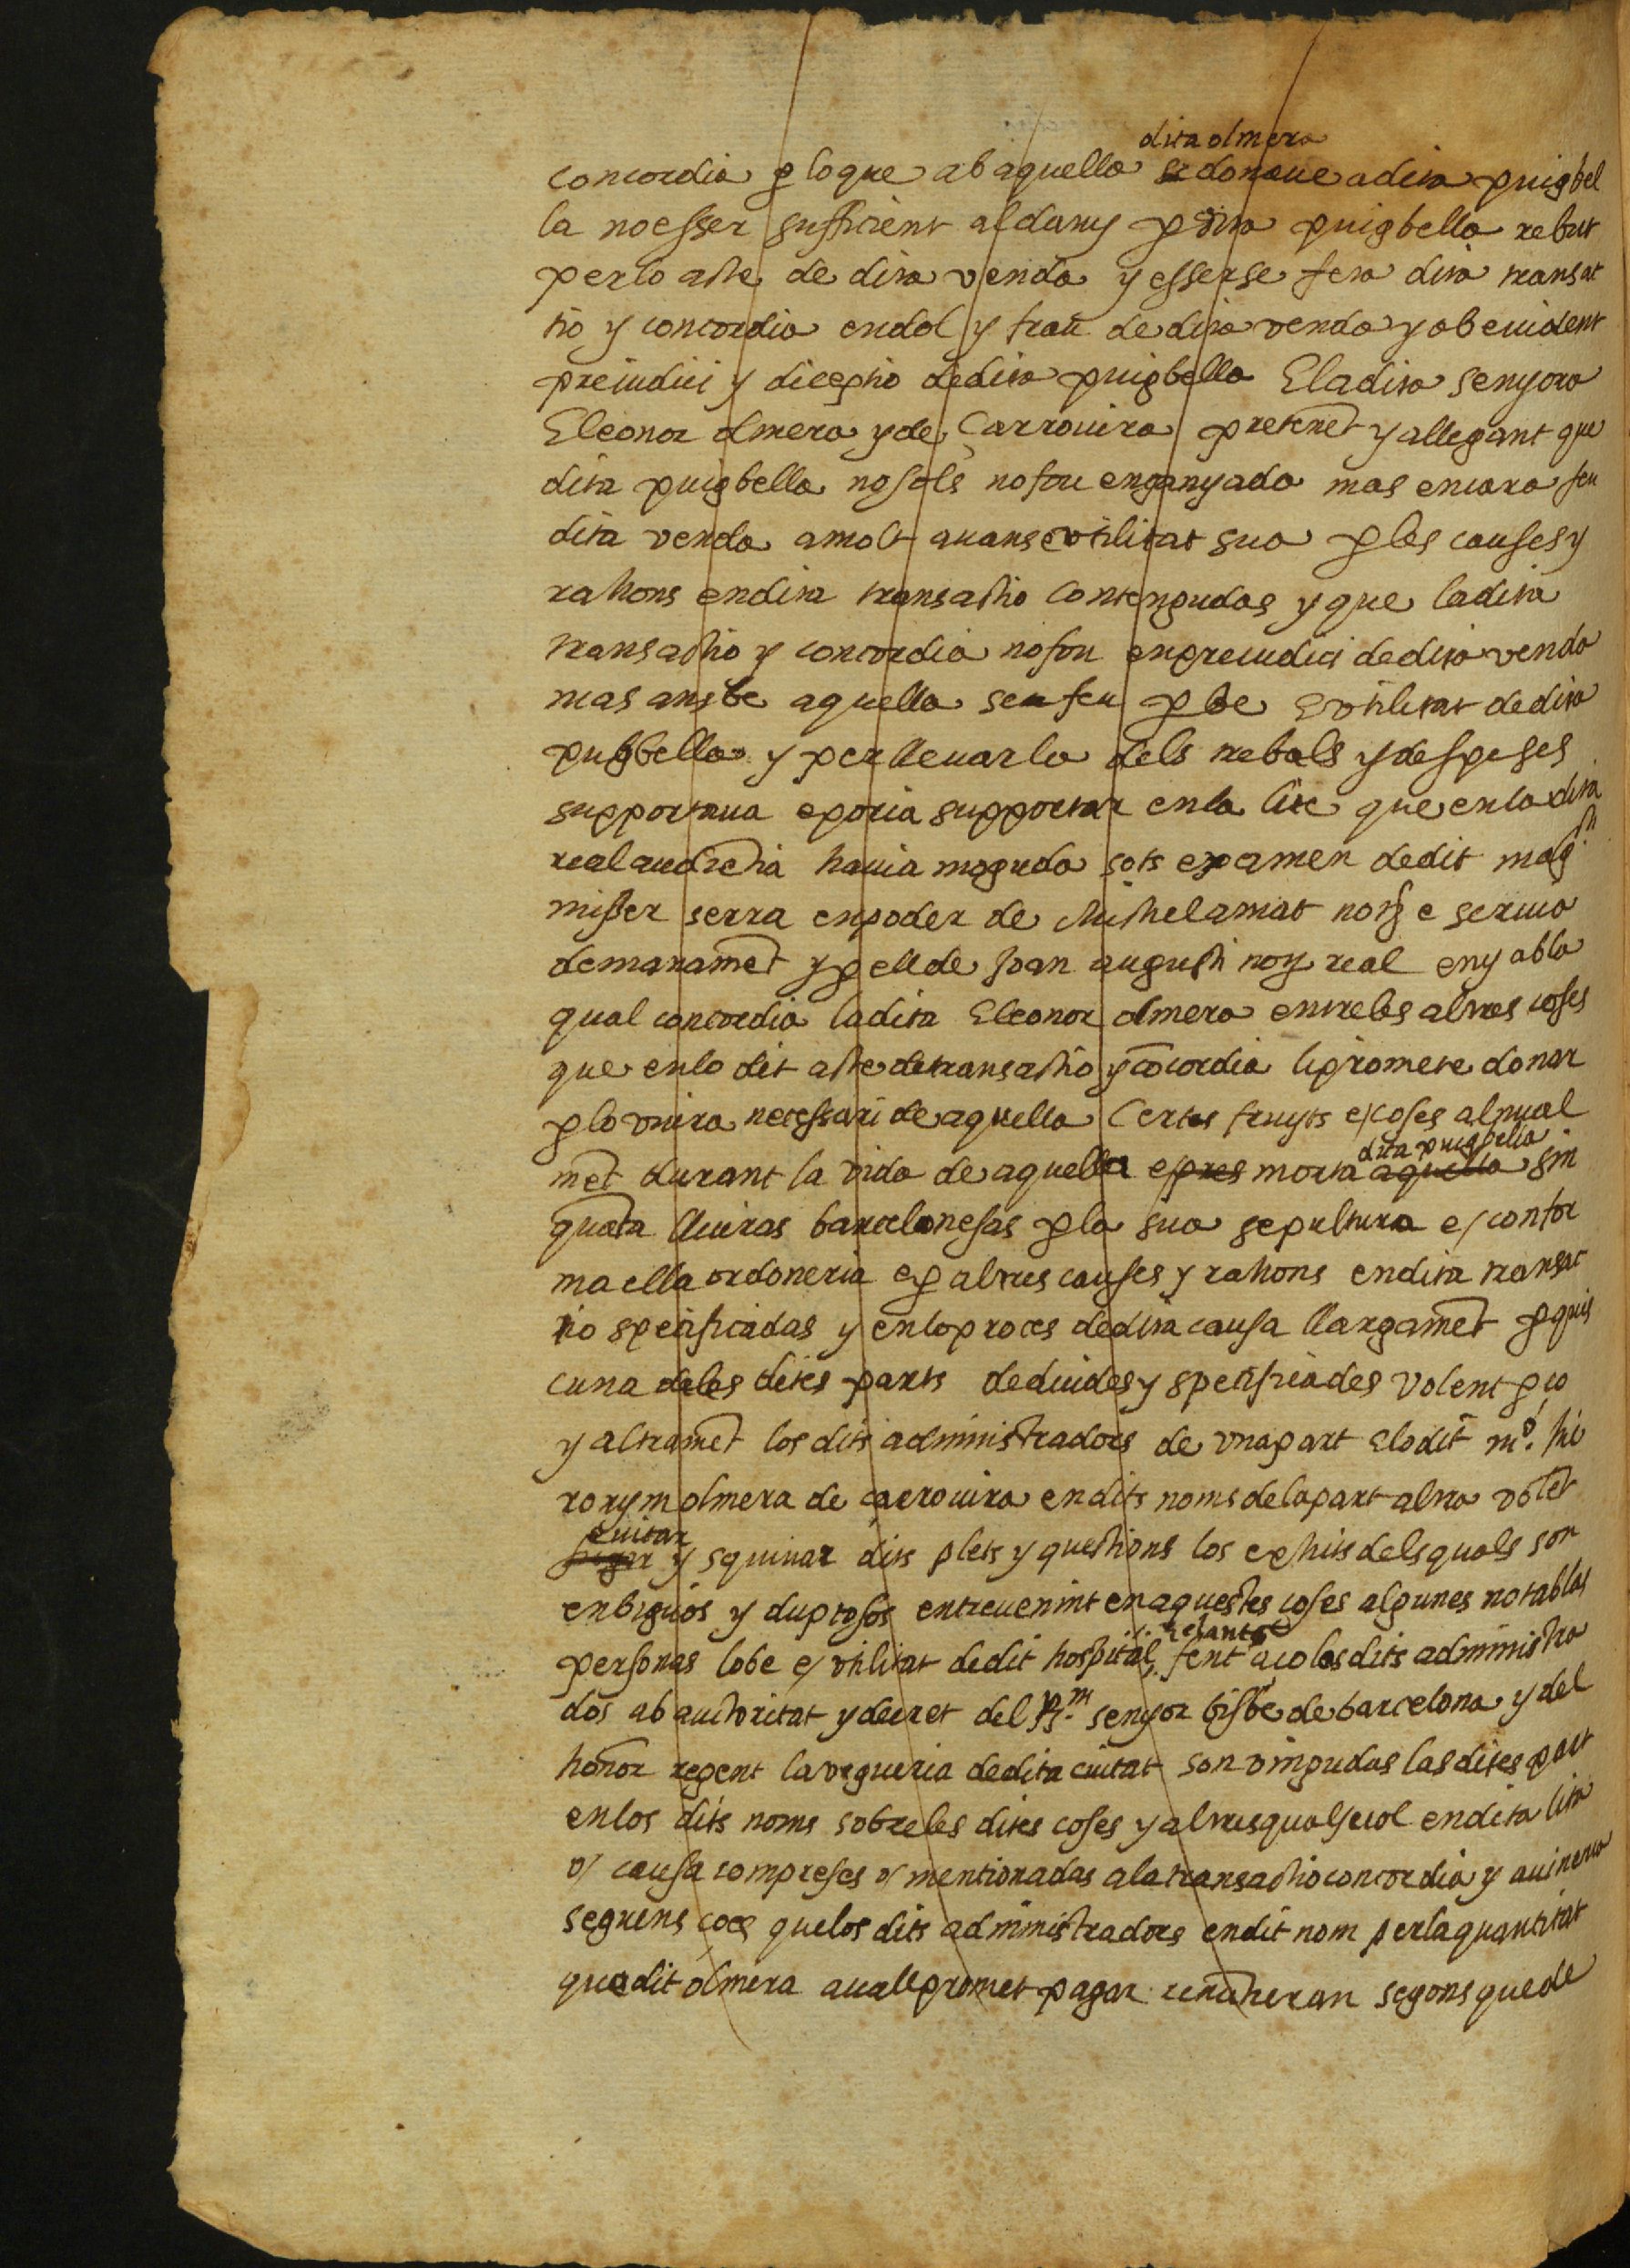 dita olmera
concordia p loque ab aquella se donaue a dita puigbel
la no esser sufficient al dany p dita puigbella rebut
per lo acte de dita venda y esserse feta dita transac
tio y concordia en dol y frau de dita venda y ab euident
preiudici y diceptio de dita puigbella E la dita senyora
Eleonor olmera y de Carrouira pretenēt y allegant que
dita puigbella no sols no fou enganyada mas encara feu
dita venda a molt auans e vtilitat sua p les causes y
rahons en dita transactio contengudas y que la dita
transactio y concordia no fou en preiudici de dita venda
mas ans be aquella se feu p be E vtilitat de dita
puigbella y per lleuarla dels trebals y despeses
supportaua e poria supportar en la lite que en la dita
real audiētia hauia moguda sots examen de dit magch
misser serra en poder de Michel amat notj e scriua
de manamēt y p ell de Joan augusti notj real en y ab la
qual concordia la dita Eleonor olmera entre les altres coses
que en lo dit acte de transactio y cōcordia li promete donar
p lo viura necessari de aquella Certes fruyts e coses annual
mēt durant la vida de aquella e pres morta aquella sin
dita puigbella
quāta lliuras barcelonesas p la sua sepultura e confor
ma ella ordoneria e p altres causes y rahons en dita transac
tio specificadas y en lo proces de dita causa llargamēt p quis
cuna de les dites parts deduides y specificades Volent p ço
y altramēt los dits administradors de vna part E lo dit mo. hie
ronym olmera de çacrouira en dits noms de la part altra volēt
euitar
pigar y squiuar dits plets y questions los exhits dels quals son
enbiguos y duptosos entreuenint en aquestes coses algunes notables
personas lo be e vtilitat de dit hospital, fent aço los dits administra
dos ab auctoritat y decret del Rm senyor bisbe de barcelona y del
honor regent la vegueria de dita ciutat son vingudas las dites part
en los dits noms sobre les dites coses y altres qualseuol en dita lita
o causa compreses o mentionadas a la transactio concordia y auinença
seguens ço es que los dits administradors en dit nom per la quantitat
que dit olmera auall promet pagar renūtieran segons que de